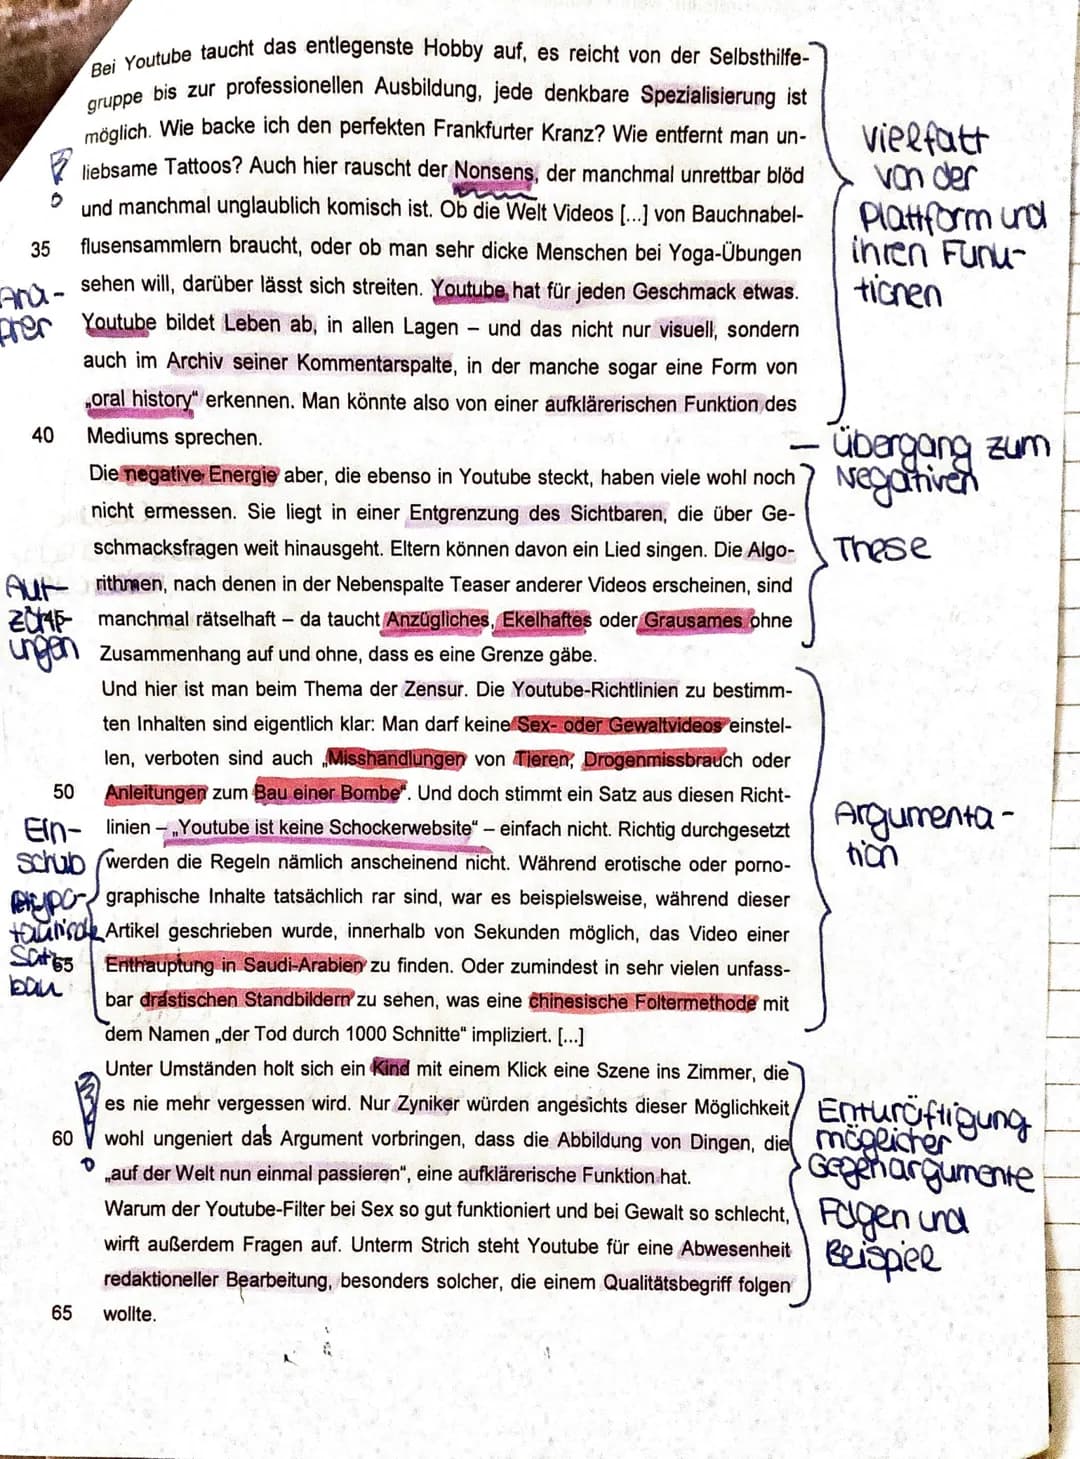 Bei Youtube taucht das entlegenste Hobby auf, es reicht von der Selbsthilfe-
gruppe bis zur professionellen Ausbildung, jede denkbare Spezialisierung ist
möglich. Wie backe ich den perfekten Frankfurter Kranz? Wie entfernt man un-
liebsame Tattoos? Auch hier rauscht der Nonsens, der manchmal unrettbar blöd
und manchmal unglaublich komisch ist. Ob die Welt Videos [...] von Bauchnabel-
35 flusensammlern braucht, oder ob man sehr dicke Menschen bei Yoga-Übungen
sehen will, darüber lässt sich streiten. Youtube hat für jeden Geschmack etwas.
Youtube bildet Leben ab, in allen Lagen – und das nicht nur visuell, sondern
auch im Archiv seiner Kommentarspalte, in der manche sogar eine Form von
„oral history" erkennen. Man könnte also von einer aufklärerischen Funktion des
40 Mediums sprechen.
Die negative Energie aber, die ebenso in Youtube steckt, haben viele wohl noch
nicht ermessen. Sie liegt in einer Entgrenzung des Sichtbaren, die über Ge-
schmacksfragen weit hinausgeht. Eltern können davon ein Lied singen. Die Algo-
rithmen, nach denen in der Nebenspalte Teaser anderer Videos erscheinen, sind
manchmal rätselhaft – da taucht Anzügliches, Ekelhaftes oder Grausames ohne
Zusammenhang auf und ohne, dass es eine Grenze gäbe.
Und hier ist man beim Thema der Zensur. Die Youtube-Richtlinien zu bestimm-
ten Inhalten sind eigentlich klar: Man darf keine Sex- oder Gewaltvideos einstel-
len, verboten sind auch „Misshandlungen von Tieren, Drogenmissbrauch oder
50 Anleitungen zum Bau einer Bombe". Und doch stimmt ein Satz aus diesen Richt-
linien – „Youtube ist keine Schockerwebsite" – einfach nicht. Richtig durchgesetzt
werden die Regeln nämlich anscheinend nicht. Während erotische oder porno-
graphische Inhalte tatsächlich rar sind, war es beispielsweise, während dieser
Artikel geschrieben wurde, innerhalb von Sekunden möglich, das Video einer
Enthauptung in Saudi-Arabien zu finden. Oder zumindest in sehr vielen unfass-
bar drastischen Standbildern zu sehen, was eine chinesische Foltermethode mit
dem Namen „der Tod durch 1000 Schnitte" impliziert. [...]
Unter Umständen holt sich ein Kind mit einem Klick eine Szene ins Zimmer, die
es nie mehr vergessen wird. Nur Zyniker würden angesichts dieser Möglichkeit
60 wohl ungeniert das Argument vorbringen, dass die Abbildung von Dingen, die
„auf der Welt nun einmal passieren", eine aufklärerische Funktion hat.
Warum der Youtube-Filter bei Sex so gut funktioniert und bei Gewalt so schlecht,
wirft außerdem Fragen auf. Unterm Strich steht Youtube für eine Abwesenheit
redaktioneller Bearbeitung, besonders solcher, die einem Qualitätsbegriff folgen
65 wollte.
Ana-
pher
Auf-
zählungen
Ein-
schub
Satz-
bau
vielfalt
von der
Plattform und
ihren Funk-
tionen
– Übergang zum
Negativen
These
Argumenta-
tion
Entkräftigung
möglicher
Gegenargumente
Folgen und
Beispiel